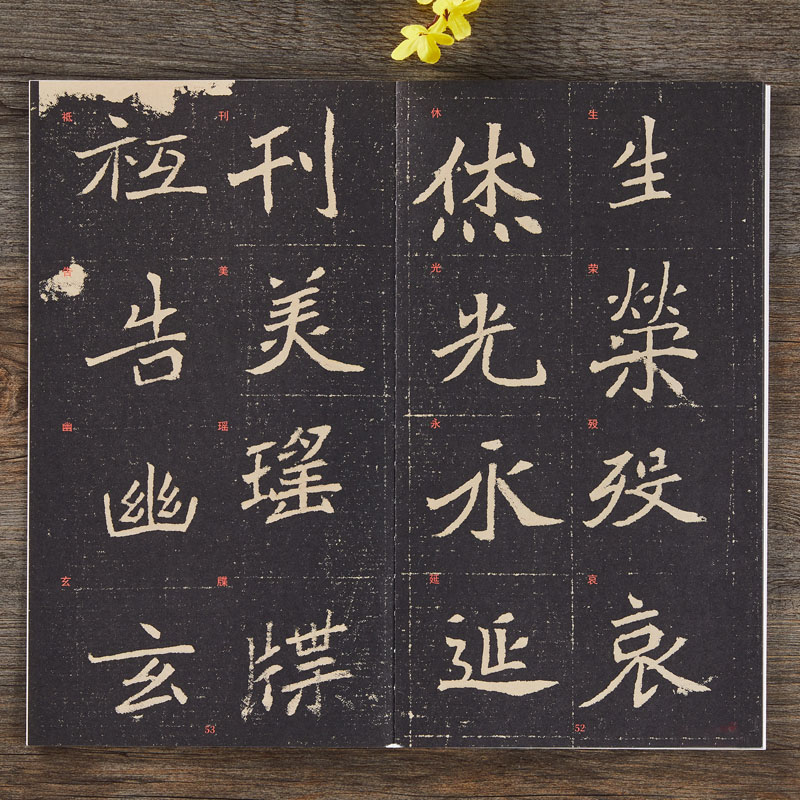 生榮殁哀
烋光永延
刊美瑤牒
祗告幽玄
生
荣
殁
哀
休
光
永
延
刊
美
瑶
牒
祗
告
幽
玄
52
53